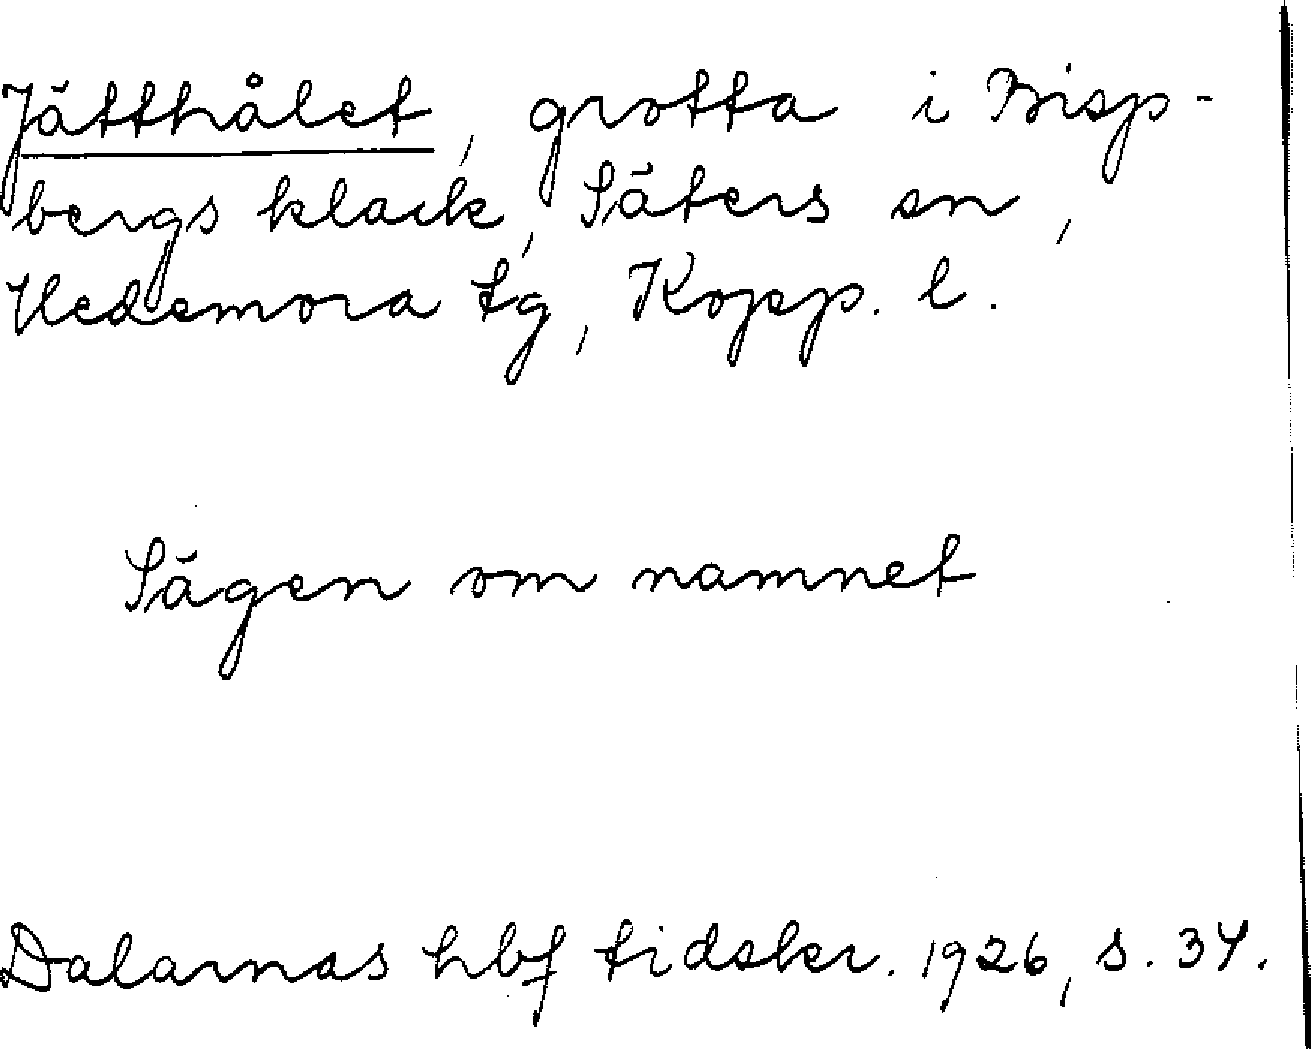 Jätthålet, grotta i Bisp-
bergs klack, Säters sn,
Hedemora tg, Kopp. l.
Sägen om namnet
Dalarnas hbf tidskr. 1926, s. 34.